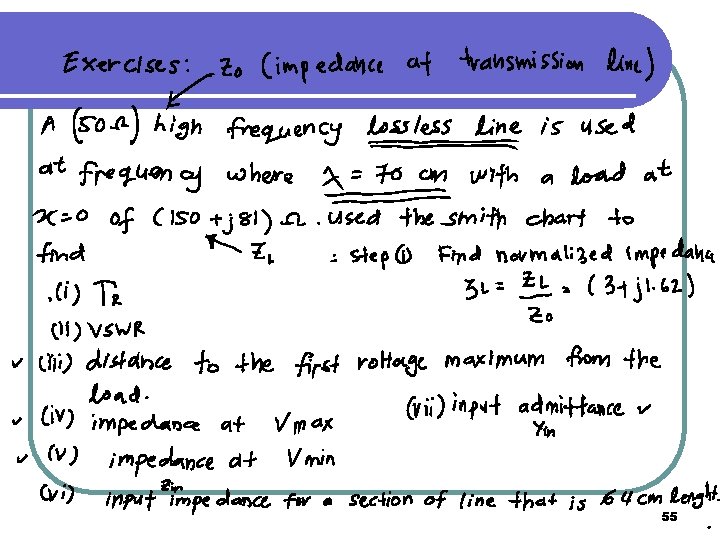 Exercises: Z0 (impedance at transmission line)
A (50Ω) high frequency lossless line is used
at frequency where λ = 70 cm with a load at
x=0 of (150 + j81) Ω. used the smith chart to
find ZL : step (i) Find normalized impedance
.(i) TR zL = ZL/Z0 = (3+j1.62)
(ii) VSWR
✓ (iii) distance to the first voltage maximum from the
load.
✓ (iv) impedance at Vmax (vii) input admittance ✓
Yin
✓ (v) impedance at Vmin
(vi) input Zin impedance for a section of line that is 64 cm lenght.
55